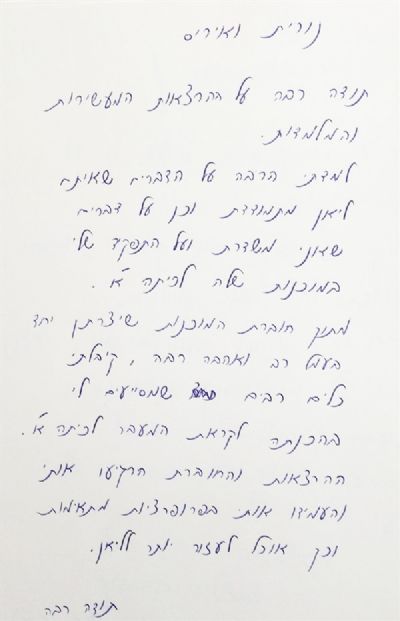 נורית ואיריס
תודה רבה על ההרצאות המעשירות
והמלמדות.
למדתי הרבה על הדברים שאיתם
ליאן מתמודדת וכן על דברים
שאני משדרת ועל התפקיד שלי
במוכנות שלה לכיתה א'.
מתוך חוברת המוכנות שיצרתן יחד
בעמל רב ואהבה רבה, קיבלתי
כלים רבים שמסייעים לי
בהכנתה לקראת המעבר לכיתה א'.
ההרצאות והחוברת הרגיעו אותי
והעמידו אותי בפרופרציות מתאימות
וכך אוכל לעזור יותר לליאן.
תודה רבה